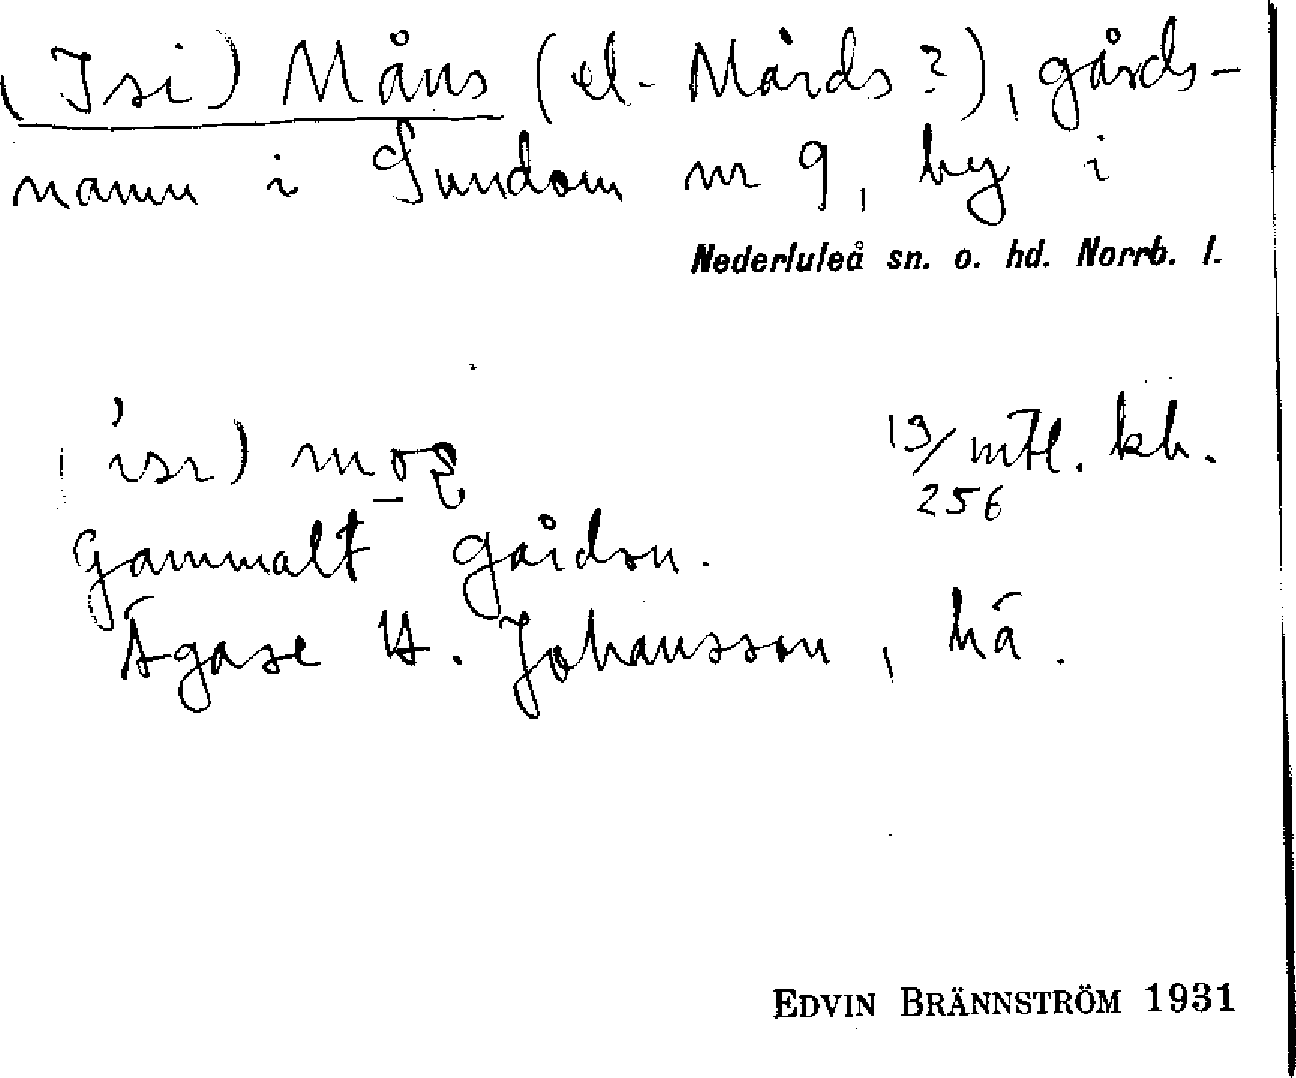 (Isi) Måns (el. Mårds?), gårds-
namn i Sundom nr 9, by i
Nederluleå sn. o. hd. Norrb. l.
13/256 mtl. kh.
Gammalt gårdsn.
Ägare H. Johansson, hä.
EDVIN BRÄNNSTRÖM 1931